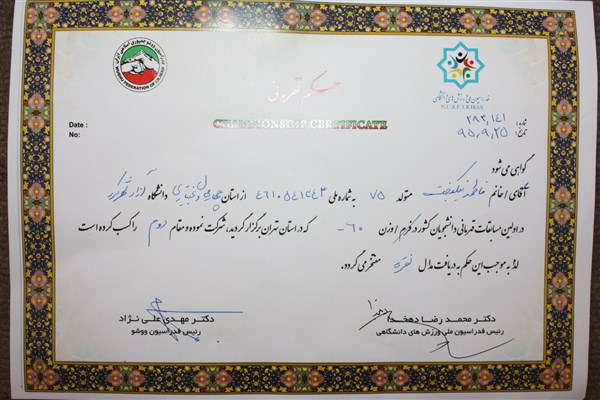 حکم قهرمانی
CHAMPIONSHIP CERTIFICATE
فدراسیون ملی ورزش های دانشگاهی
N.U.S.F. I.R.IRAN
WUSHU FEDERATION OF I.R. IRAN
Date :
No:
شماره: ۲۸۲,۱۴۱
تاریخ: ۹۵,۹,۲۵
گواهی می شود
آقای / خانم فاطمه نیکبخت متولد ۷۵ به شماره ملی ۴۶۱۰۵۴۱۶۴۳ از استان چهارمحال و بختیاری دانشگاه آزاد شهرکرد
در اولین مسابقات قهرمانی دانشجویان کشور در فرم / وزن ۶۰- که در استان تهران برگزار گردید، شرکت نموده و مقام دوم را کسب کرده است
لذا به موجب این حکم به دریافت مدال نقره مفتخر می گردد.
دکتر محمد رضا دهخدا
رئیس فدراسیون ملی ورزش های دانشگاهی
دکتر مهدی علی نژاد
رئیس فدراسیون ووشو